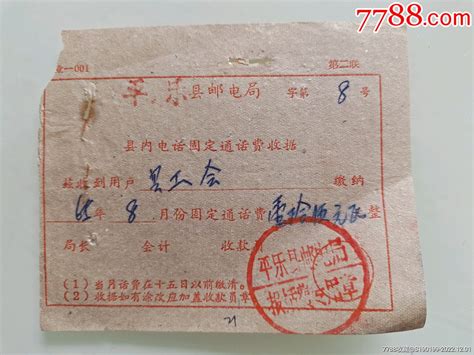 7788.com
—001
第二联
平乐县邮电局 字第8号
县内电话固定通话费收据
兹收到用户 县工会 缴纳
65年8月份固定通话费 元 整
局长 会计 收款
(1)当月话费在十五日以前缴清。
(2)收据如有涂改应加盖收款员章
平乐县邮电局
21
7788收藏@S190199-2022.12.01